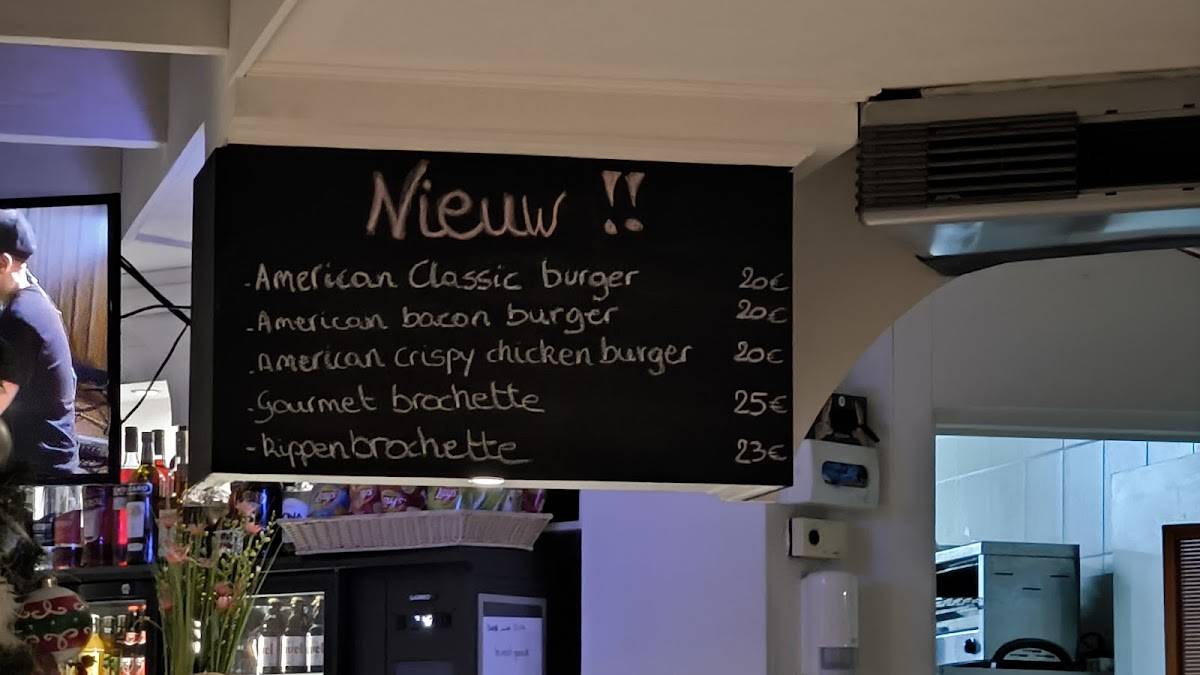 Nieuw !!
-American Classic burger 20€
-American bacon burger 20€
-American crispy chicken burger 20€
-Gourmet brochette 25€
-Kippenbrochette 23€
Lay's